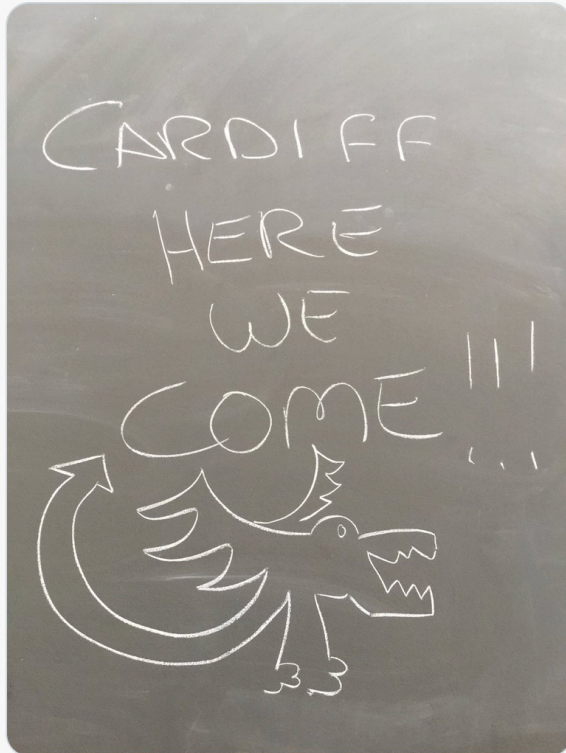 CARDIFF
HERE
WE
COME!!!